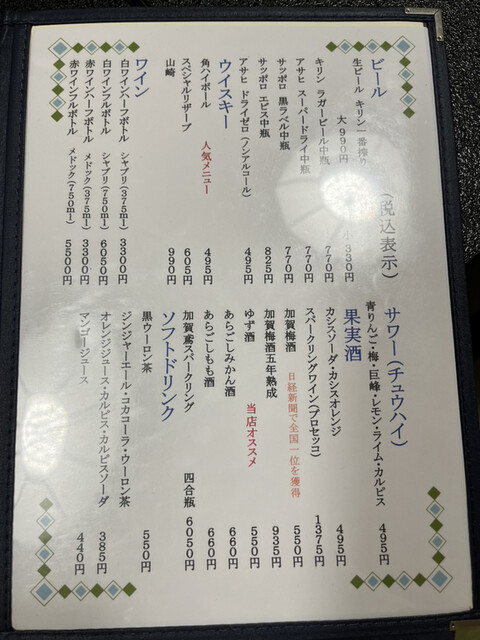 (税込表示)
ビール
生ビール キリン一番搾り 大 990円 小 330円
キリン ラガービール中瓶 770円
アサヒ スーパードライ中瓶 770円
サッポロ 黒ラベル中瓶 770円
サッポロ エビス中瓶 825円
アサヒ ドライゼロ(ノンアルコール) 495円
ウイスキー
角ハイボール 人気メニュー 495円
スペシャルリザーブ 605円
山崎 990円
ワイン
白ワインハーフボトル シャブリ(375ml) 3300円
白ワインフルボトル シャブリ(750ml) 6050円
赤ワインハーフボトル メドック(375ml) 3300円
赤ワインフルボトル メドック(750ml) 5500円
サワー(チュウハイ)
青りんご・梅・巨峰・レモン・ライム・カルピス 495円
果実酒
カシスソーダ・カシスオレンジ 495円
スパークリングワイン(プロセッコ) 1375円
加賀梅酒 日経新聞で全国一位を獲得 550円
加賀梅酒五年熟成 935円
ゆず酒 当店オススメ 550円
あらごしみかん酒 660円
あらごしもも酒 660円
加賀鳶スパークリング 四合瓶 6050円
ソフトドリンク
黒ウーロン茶 550円
ジンジャーエール・コカコーラ・ウーロン茶
オレンジジュース・カルピス・カルピスソーダ 385円
マンゴージュース 440円